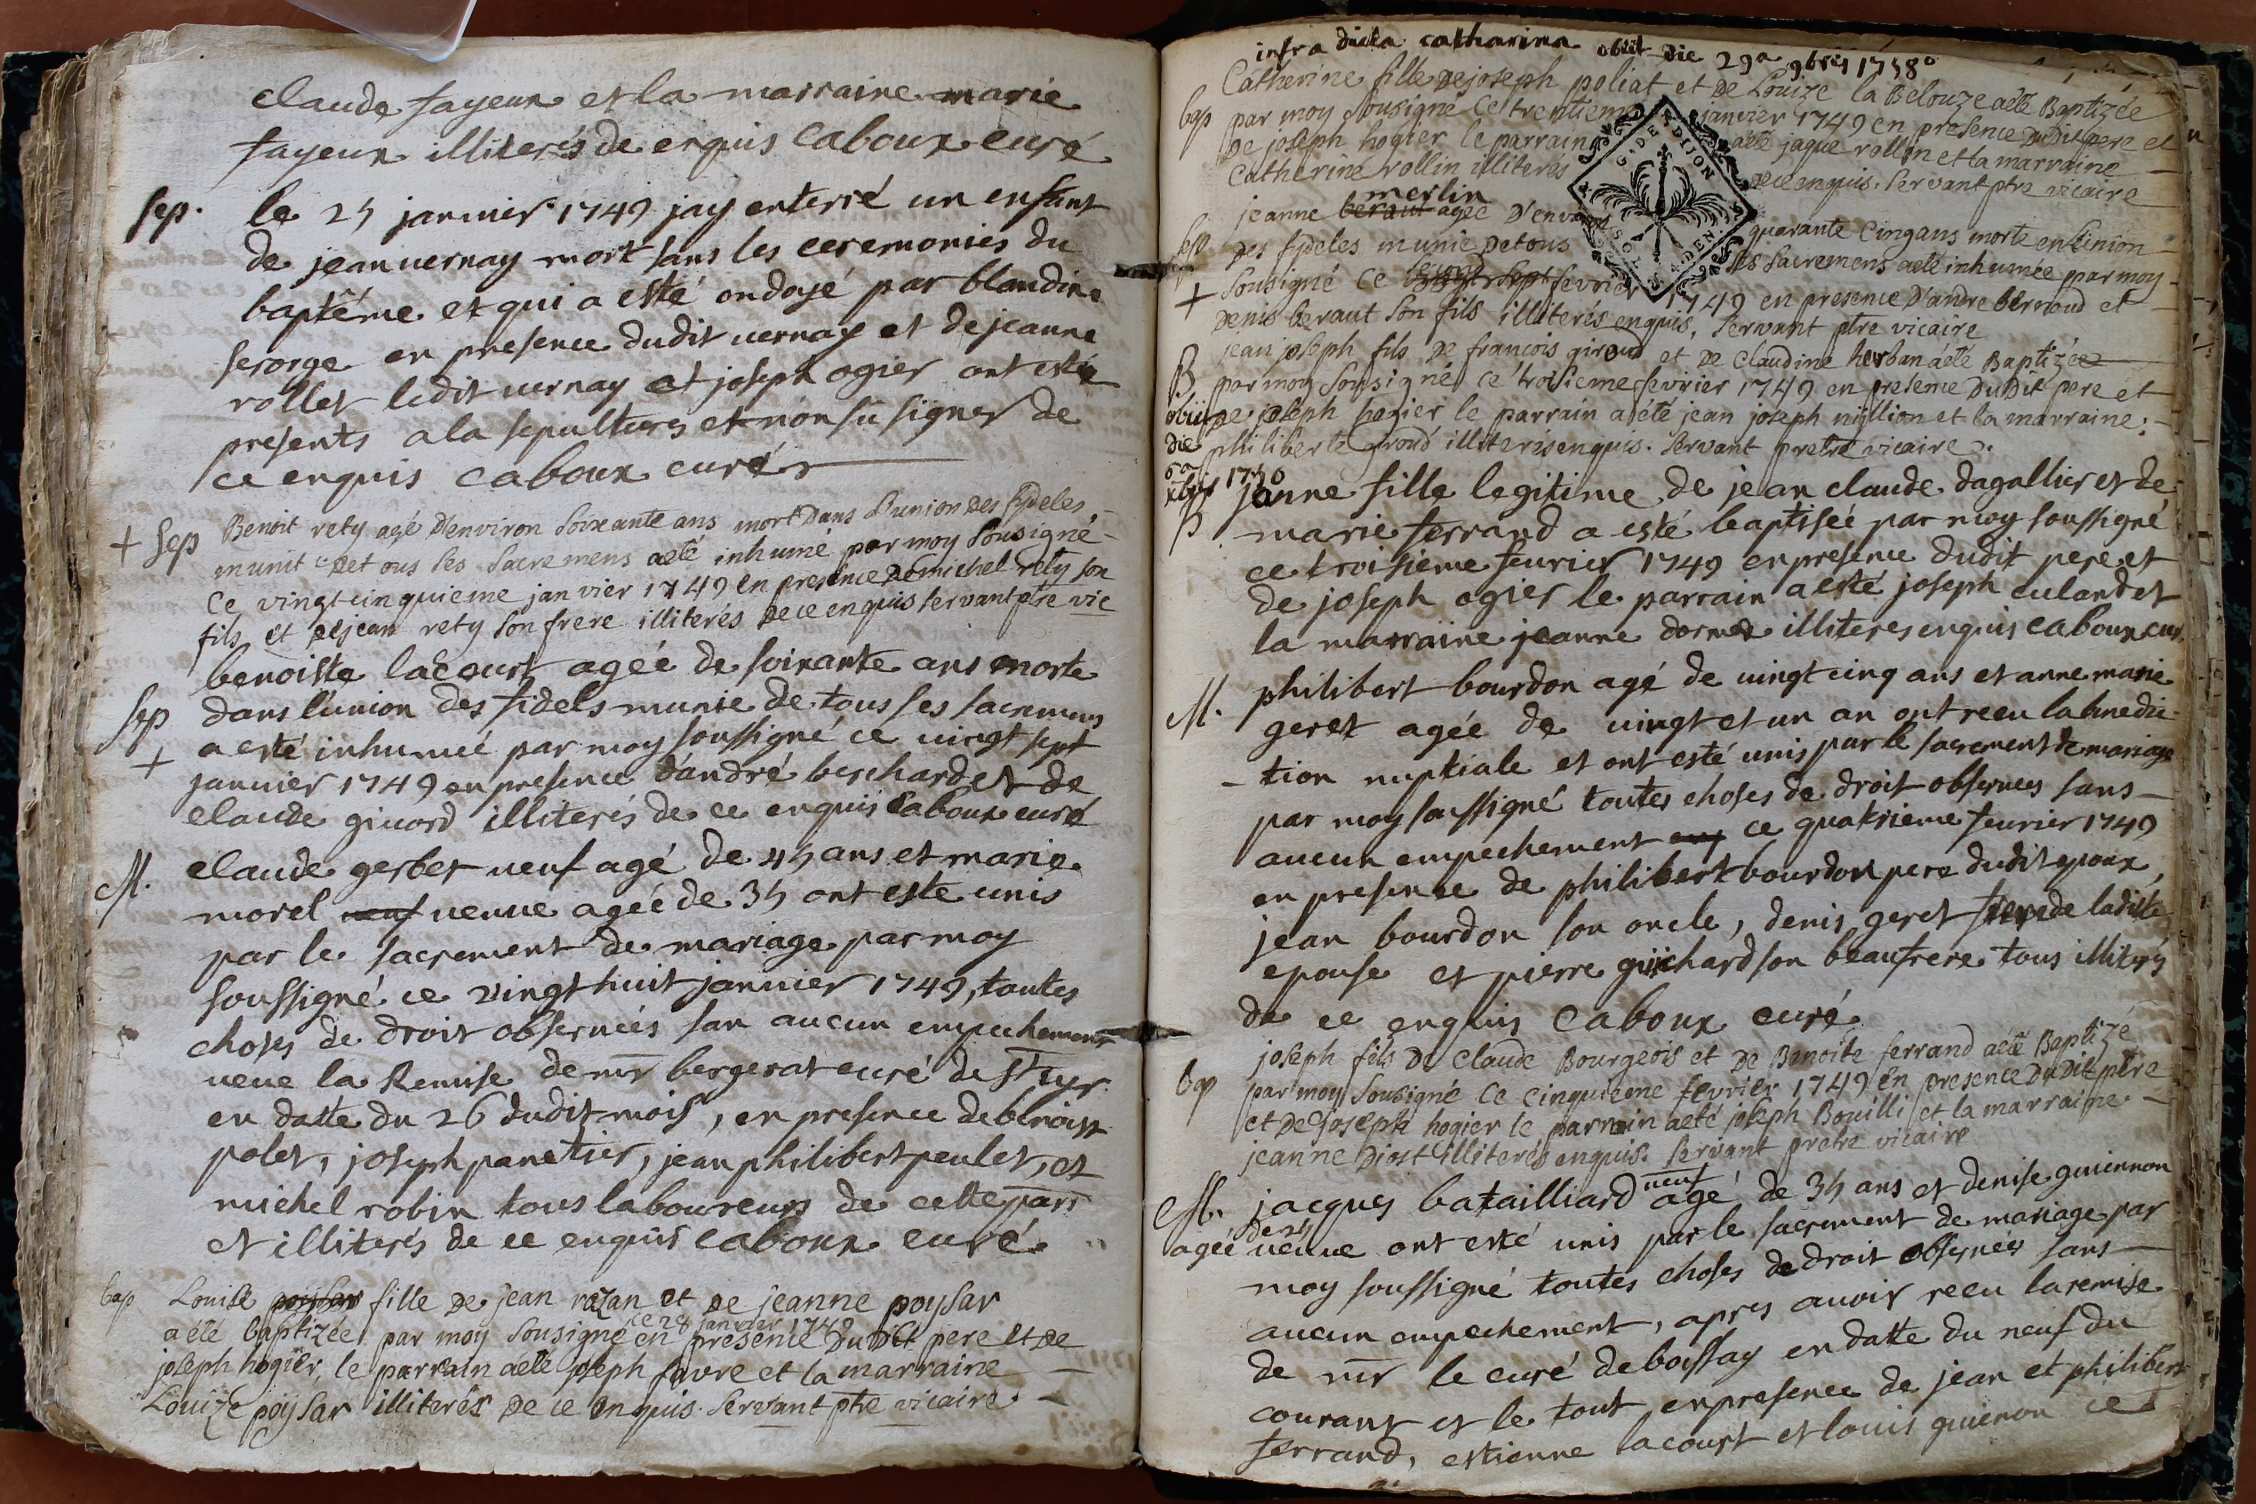 claude fayeux et la marraine marie
fayeux illiterés de enquis Caboux curé
sep. le 25 janvier 1749 jay enterré un enfant
de jean vernay mort sans les ceremonies du
baptême et qui a esté ondoyé par blandine
ferorge en presence dudit vernay et de jeanne
rollet ledit vernay et joseph ogier ont esté
presents a la sepulture et non sü signer de
ce enquis caboux curé
+ sep Benoit rety agé d'environ soixante ans mort Dans l'union Des fideles
munit de tous ses sacremens aété inhumé par moy sousigné
ce vingt cinquieme janvier 1749 en presence De michel rety son
fils et De jean rety son frere illiterés De ce enquis servant ptre vic
benoiste lacourt agée de soixante ans morte
sep dans l'union des fidels munie de tous ses sacremens
+ a esté inhumée par moy soussigné ce vingt sept
janvier 1749 en presence d'andré berchard et de
claude givord illiterés de ce enquis Caboux curé
M. claude gerbet veuf agé de 45 ans et marie
morel veuf veuve agée de 35 ont este unis
par le sacrement de mariage par moy
soussigné ce vingt huit janvier 1749, toutes
choses de droit observées san aucun empechement
veue la Remise de mr bergerat curé de St cyr
en datte du 26 dudit mois, en presence de benoist
polet, joseph panetier, jean philibert peulet, et
michel robin tous laboureurs de cette parr
et illiterés de ce enquis caboux curé
bap Louise poysar fille De jean razan et De jeanne poysar
ce 28 janvier 1749
aété baptizée par moy sousigné en presence Du Dit pere et De
joseph hogier, le parrain aété joseph favre et la marraine
Louize poysar illiterés De ce enquis. Servant ptre vicaire.
infra dicta catharina obiit die 29a 9bris 1758
Catherine fille De joseph poliat et De Louize la Belouze aété Baptizée
bap par moy sousigné Ce trentieme janvier 1749 en presence Du Dit pere et
De joseph hogier le parrain aété jaque rollin et la marraine
Catherine rollin illiterés De ce enquis. Servant ptre vicaire
merlin
jeanne beraut agée D'environ quarante cinq ans morte en l'union
sep Des fideles munie De tous ses sacremens aété inhumée par moy
+ sousigné Ce sept fevrier 1749 en presence D'andre berraud et
Denis beraut son fils illiterés enquis, Servant ptre vicaire
G. DE DIJON
jean joseph fils De francois giroud et De Claudine herban aété Baptizée
B par moy sousigné Ce troisieme fevrier 1749 en presence Du Dit pere et
obiit De joseph hogier le parrain aété jean joseph million et la marraine
die philiberte giroud illiterés enquis. Servant pretre vicaire.
6a
xbris 1750
janne fille legitime de jean claude dagallier et de
marie ferrand a esté baptisée par moy soussigné
ce troisieme fevrier 1749 en presence dudit pere et
de joseph ogier le parrain a esté joseph culand et
la marraine jeanne dormet illiteres enquis caboux cur
philibert bourdon agé de vingt cinq ans et anne marie
M. geret agée de vingt et un an ont receu la benedic-
-tion nuptiale et ont esté unis par le sacrement de mariage
par moy soussigné toutes choses de droit observees sans
aucun empechement ce quatrieme fevrier 1749
en presence de philibert bourdon pere dudit epoux,
jean bourdon son oncle, denis geret frere de ladite
epouse et pierre guichard son beaufrere tous illiterés
de ce enquis Caboux curé
joseph fils De claude Bourgeois et De Benoite ferrand aété Baptizé
bap par moy sousigné Ce cinquieme fevrier 1749 en presence Du Dit pere
et De joseph hogier le parrain aété joseph Bouilli et la marraine
jeanne Diost illiterés enquis. Servant pretre vicaire
veuf
M. jacques batailliard agé de 35 ans et denise guiennon
agée de 25 veuve ont esté unis par le sacrement de mariage par
moy soussigné toutes choses de droit observées sans
aucun empechement, apres avoir receu la remise
de mr le curé de boissay en datte du neuf du
courant et le tout en presence de jean et philibert
ferrand, estienne lacourt et louis guienon ce